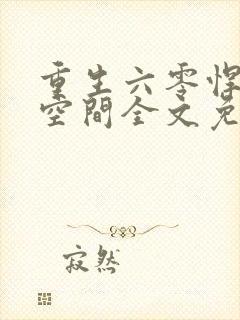 重生六零悍
空间全文免
寂然